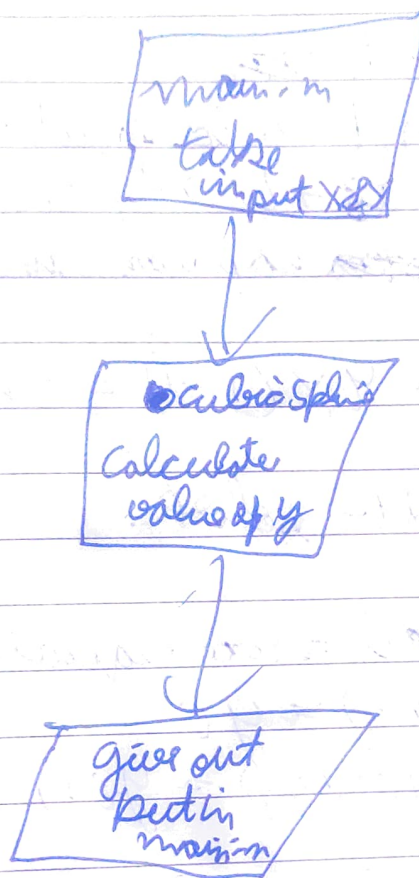 main.m
take
input X&Y
cubicSpline
Calculate
value of y
give out
put in
main.m